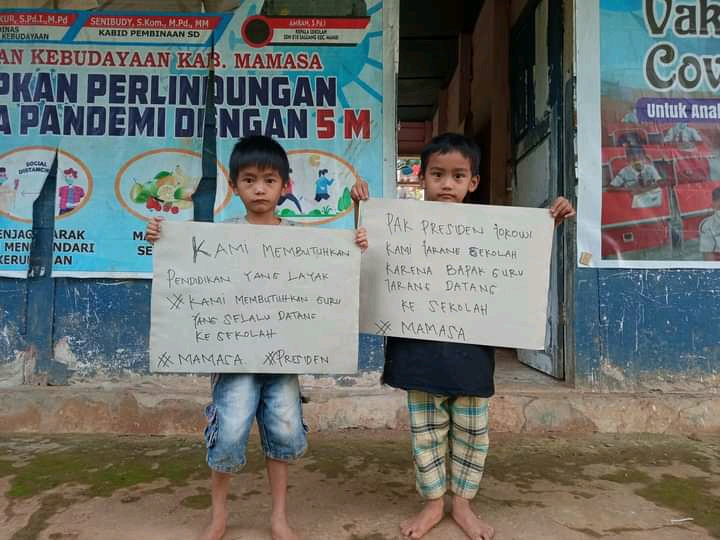 KUR, S.Pd.I., M.Pd
DINAS
KEBUDAYAAN
SENIBUDY, S.Kom., M.Pd., MM
KABID PEMBINAAN SD
AMRAN, S.Pd.I
KEPALA SEKOLAH
AN KEBUDAYAAN KAB. MAMASA
PKAN PERLINDUNGAN
A PANDEMI DENGAN 5 M
SOCIAL
DISTANCING
NJAGA JARAK
MENGHINDARI
KERUMUNAN
KAMI MEMBUTUHKAN
PENDIDIKAN YANG LAYAK
# KAMI MEMBUTUHKAN GURU
YANG SELALU DATANG
KE SEKOLAH
# MAMASA. # PRESIDEN
PAK PRESIDEN JOKOWI
KAMI JARANG SEKOLAH
KARENA BAPAK GURU
JARANG DATANG
KE SEKOLAH
# MAMASA
Vak
Cov
Untuk Anak